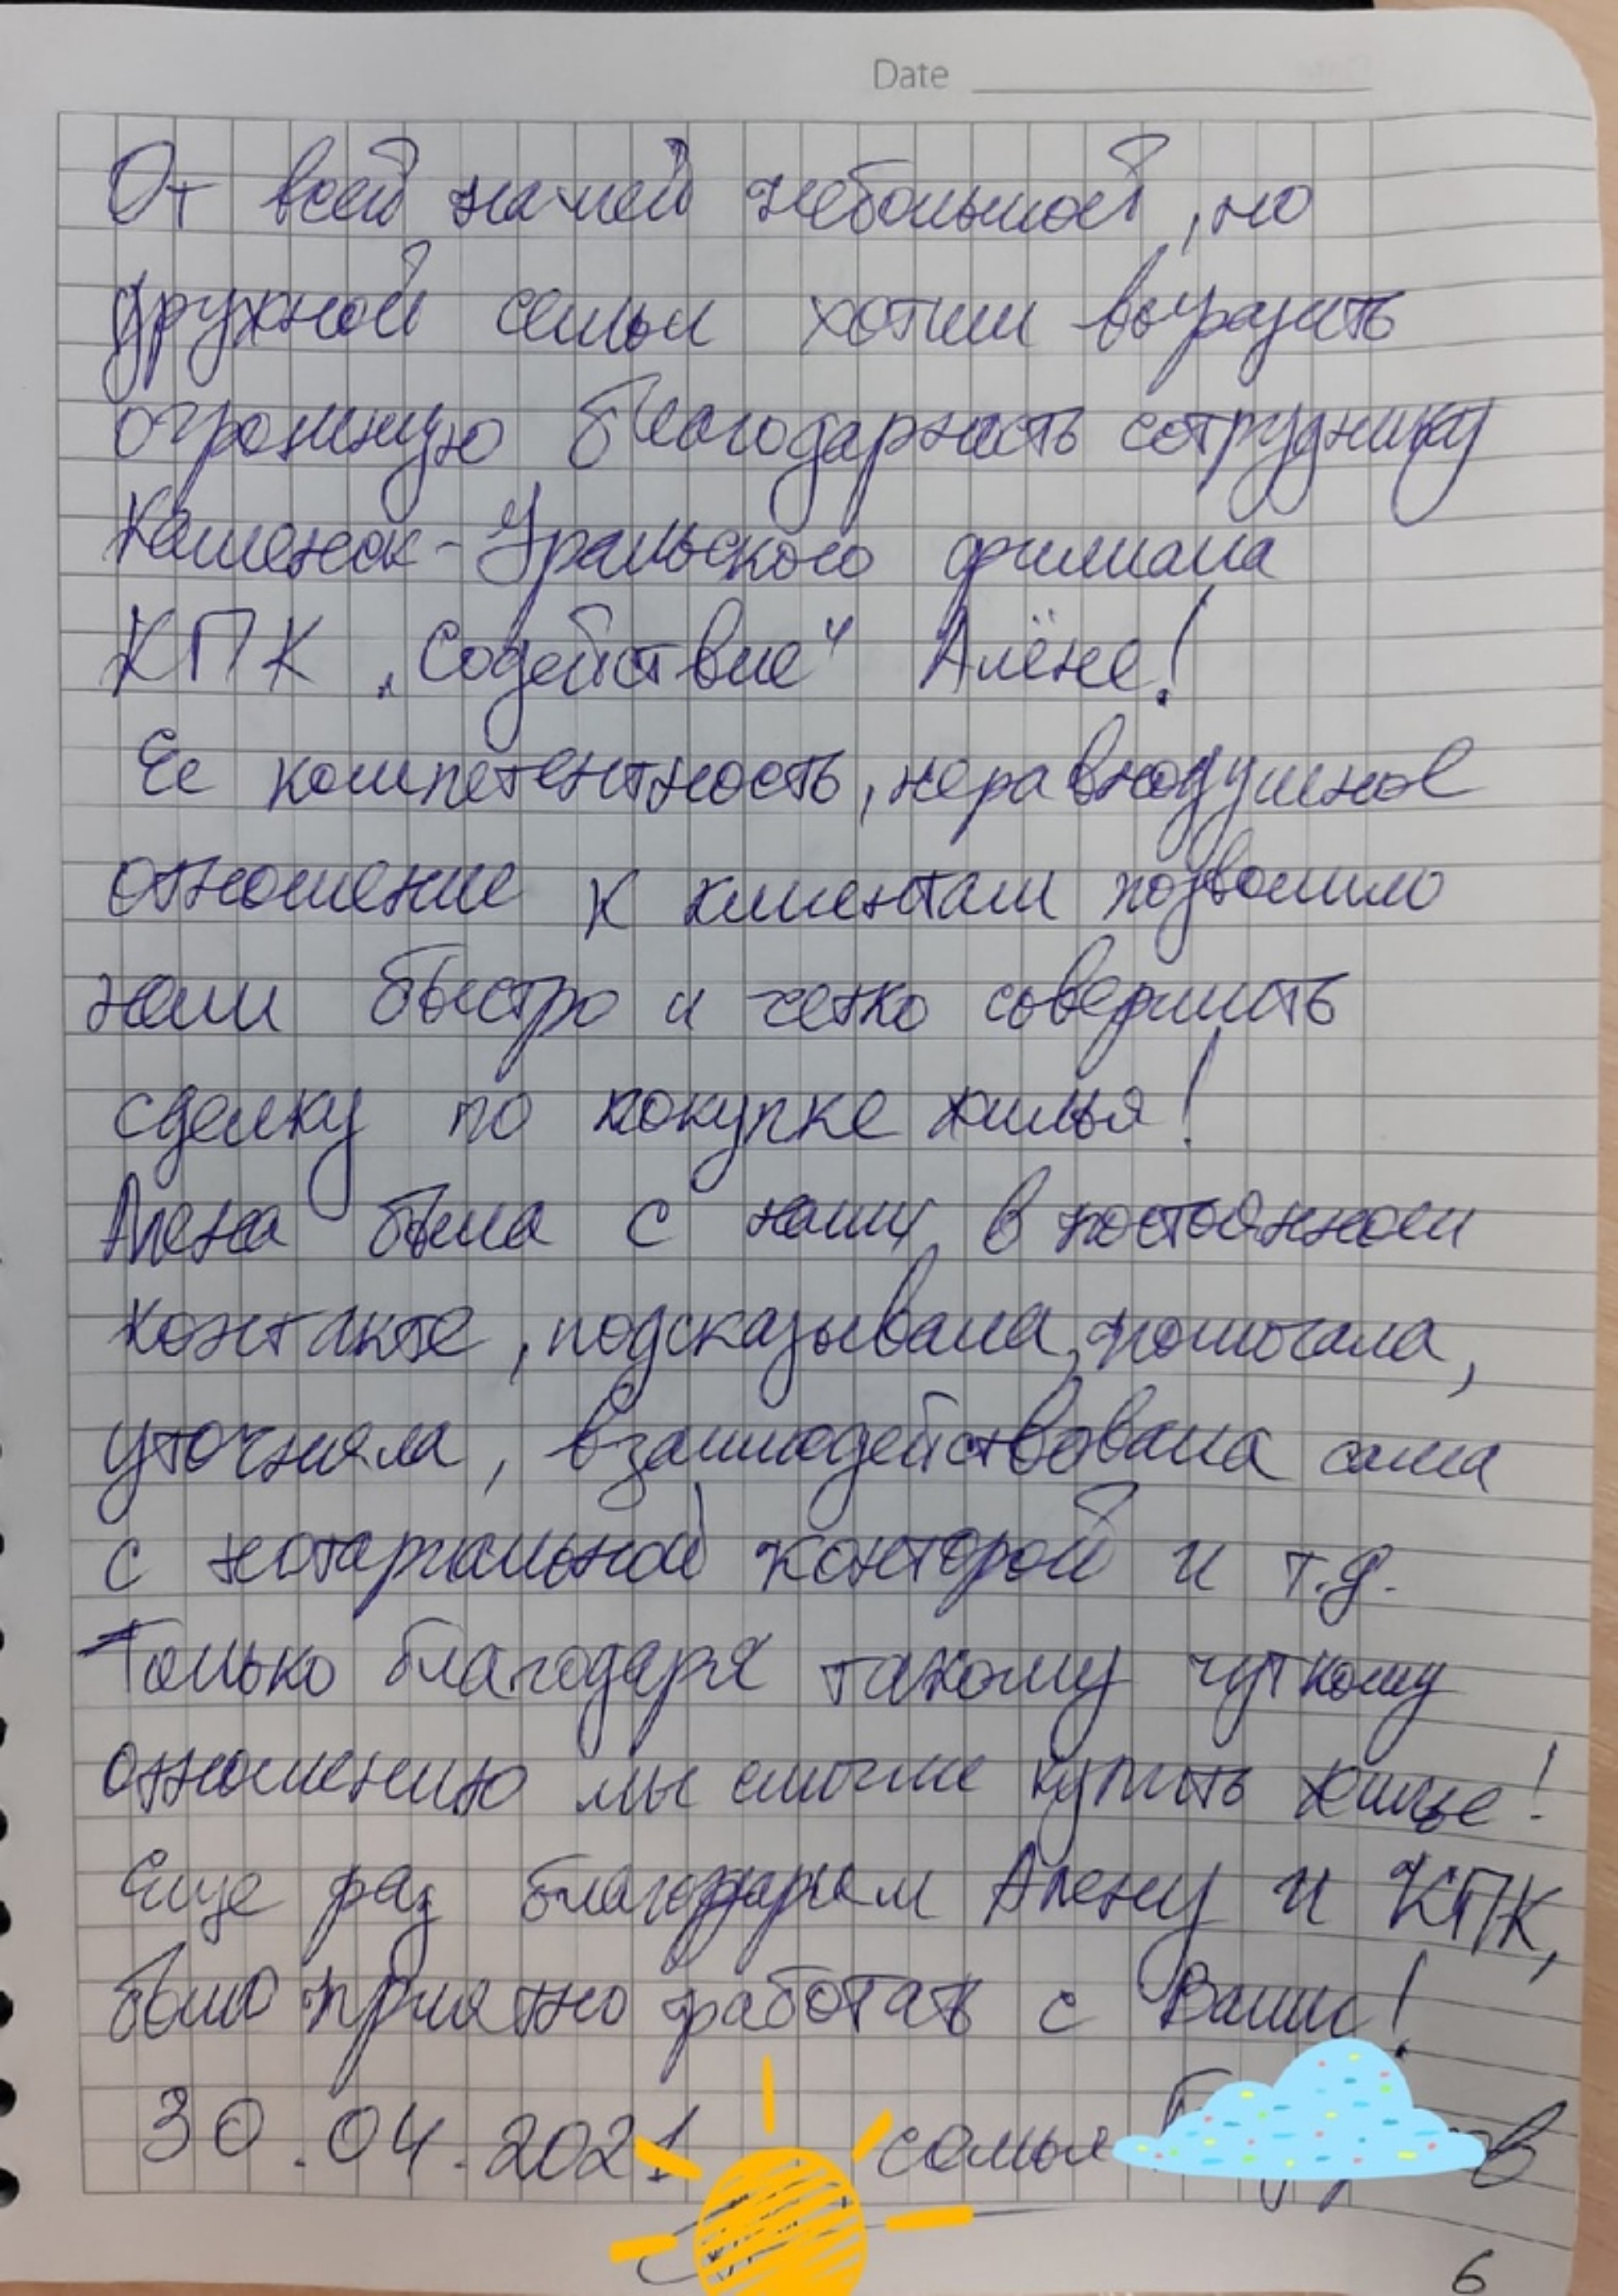 Date
От всей нашей небольшой, но
дружной семьи хотим выразить
огромную благодарность сотруднику
Каменск-Уральского филиала
КПК „Содействие" Алёне!
Ее компетентность, неравнодушное
отношение к клиентам позволило
нам быстро и четко совершить
сделку по покупке жилья!
Алена была с нами в постоянном
контакте, подсказывала, помогала,
уточняла, взаимодействовала сама
с нотариальной конторой и т.д.
Только благодаря такому чуткому
отношению мы смогли купить жилье!
Еще раз благодарим Алену и КПК,
было приятно работать с Вами!
30.04.2021 семья
6